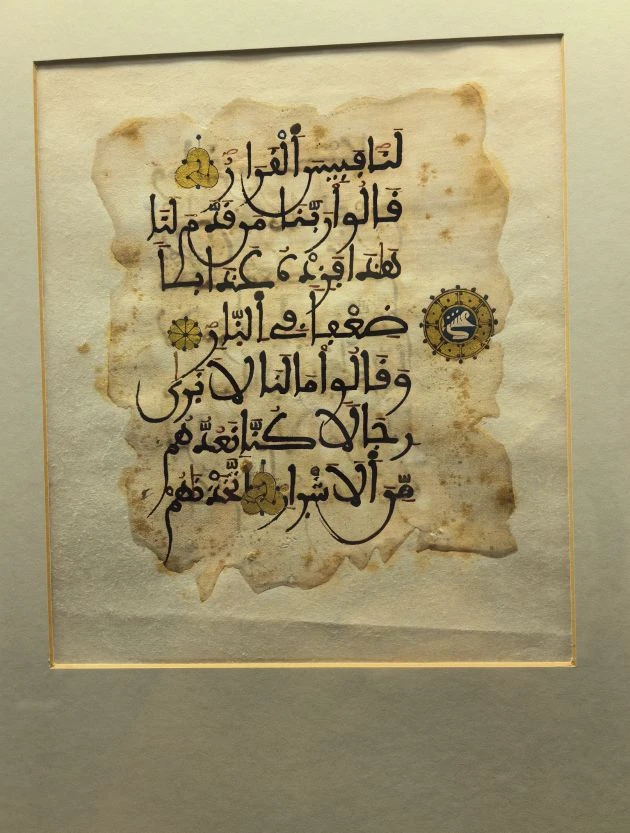 لَنَا فَبِيسَ ٱلْقَرَارُ
قَالُوا رَبَّنَا مَن قَدَّمَ لَنَا
هَٰذَا فَزِدْهُ عَذَابًا
ضِعْفًا فِي ٱلنَّارِ
وَقَالُوا مَا لَنَا لَا نَرَىٰ
رِجَالًا كُنَّا نَعُدُّهُم
مِّنَ ٱلْأَشْرَارِ أَتَّخَذْنَٰهُمْ